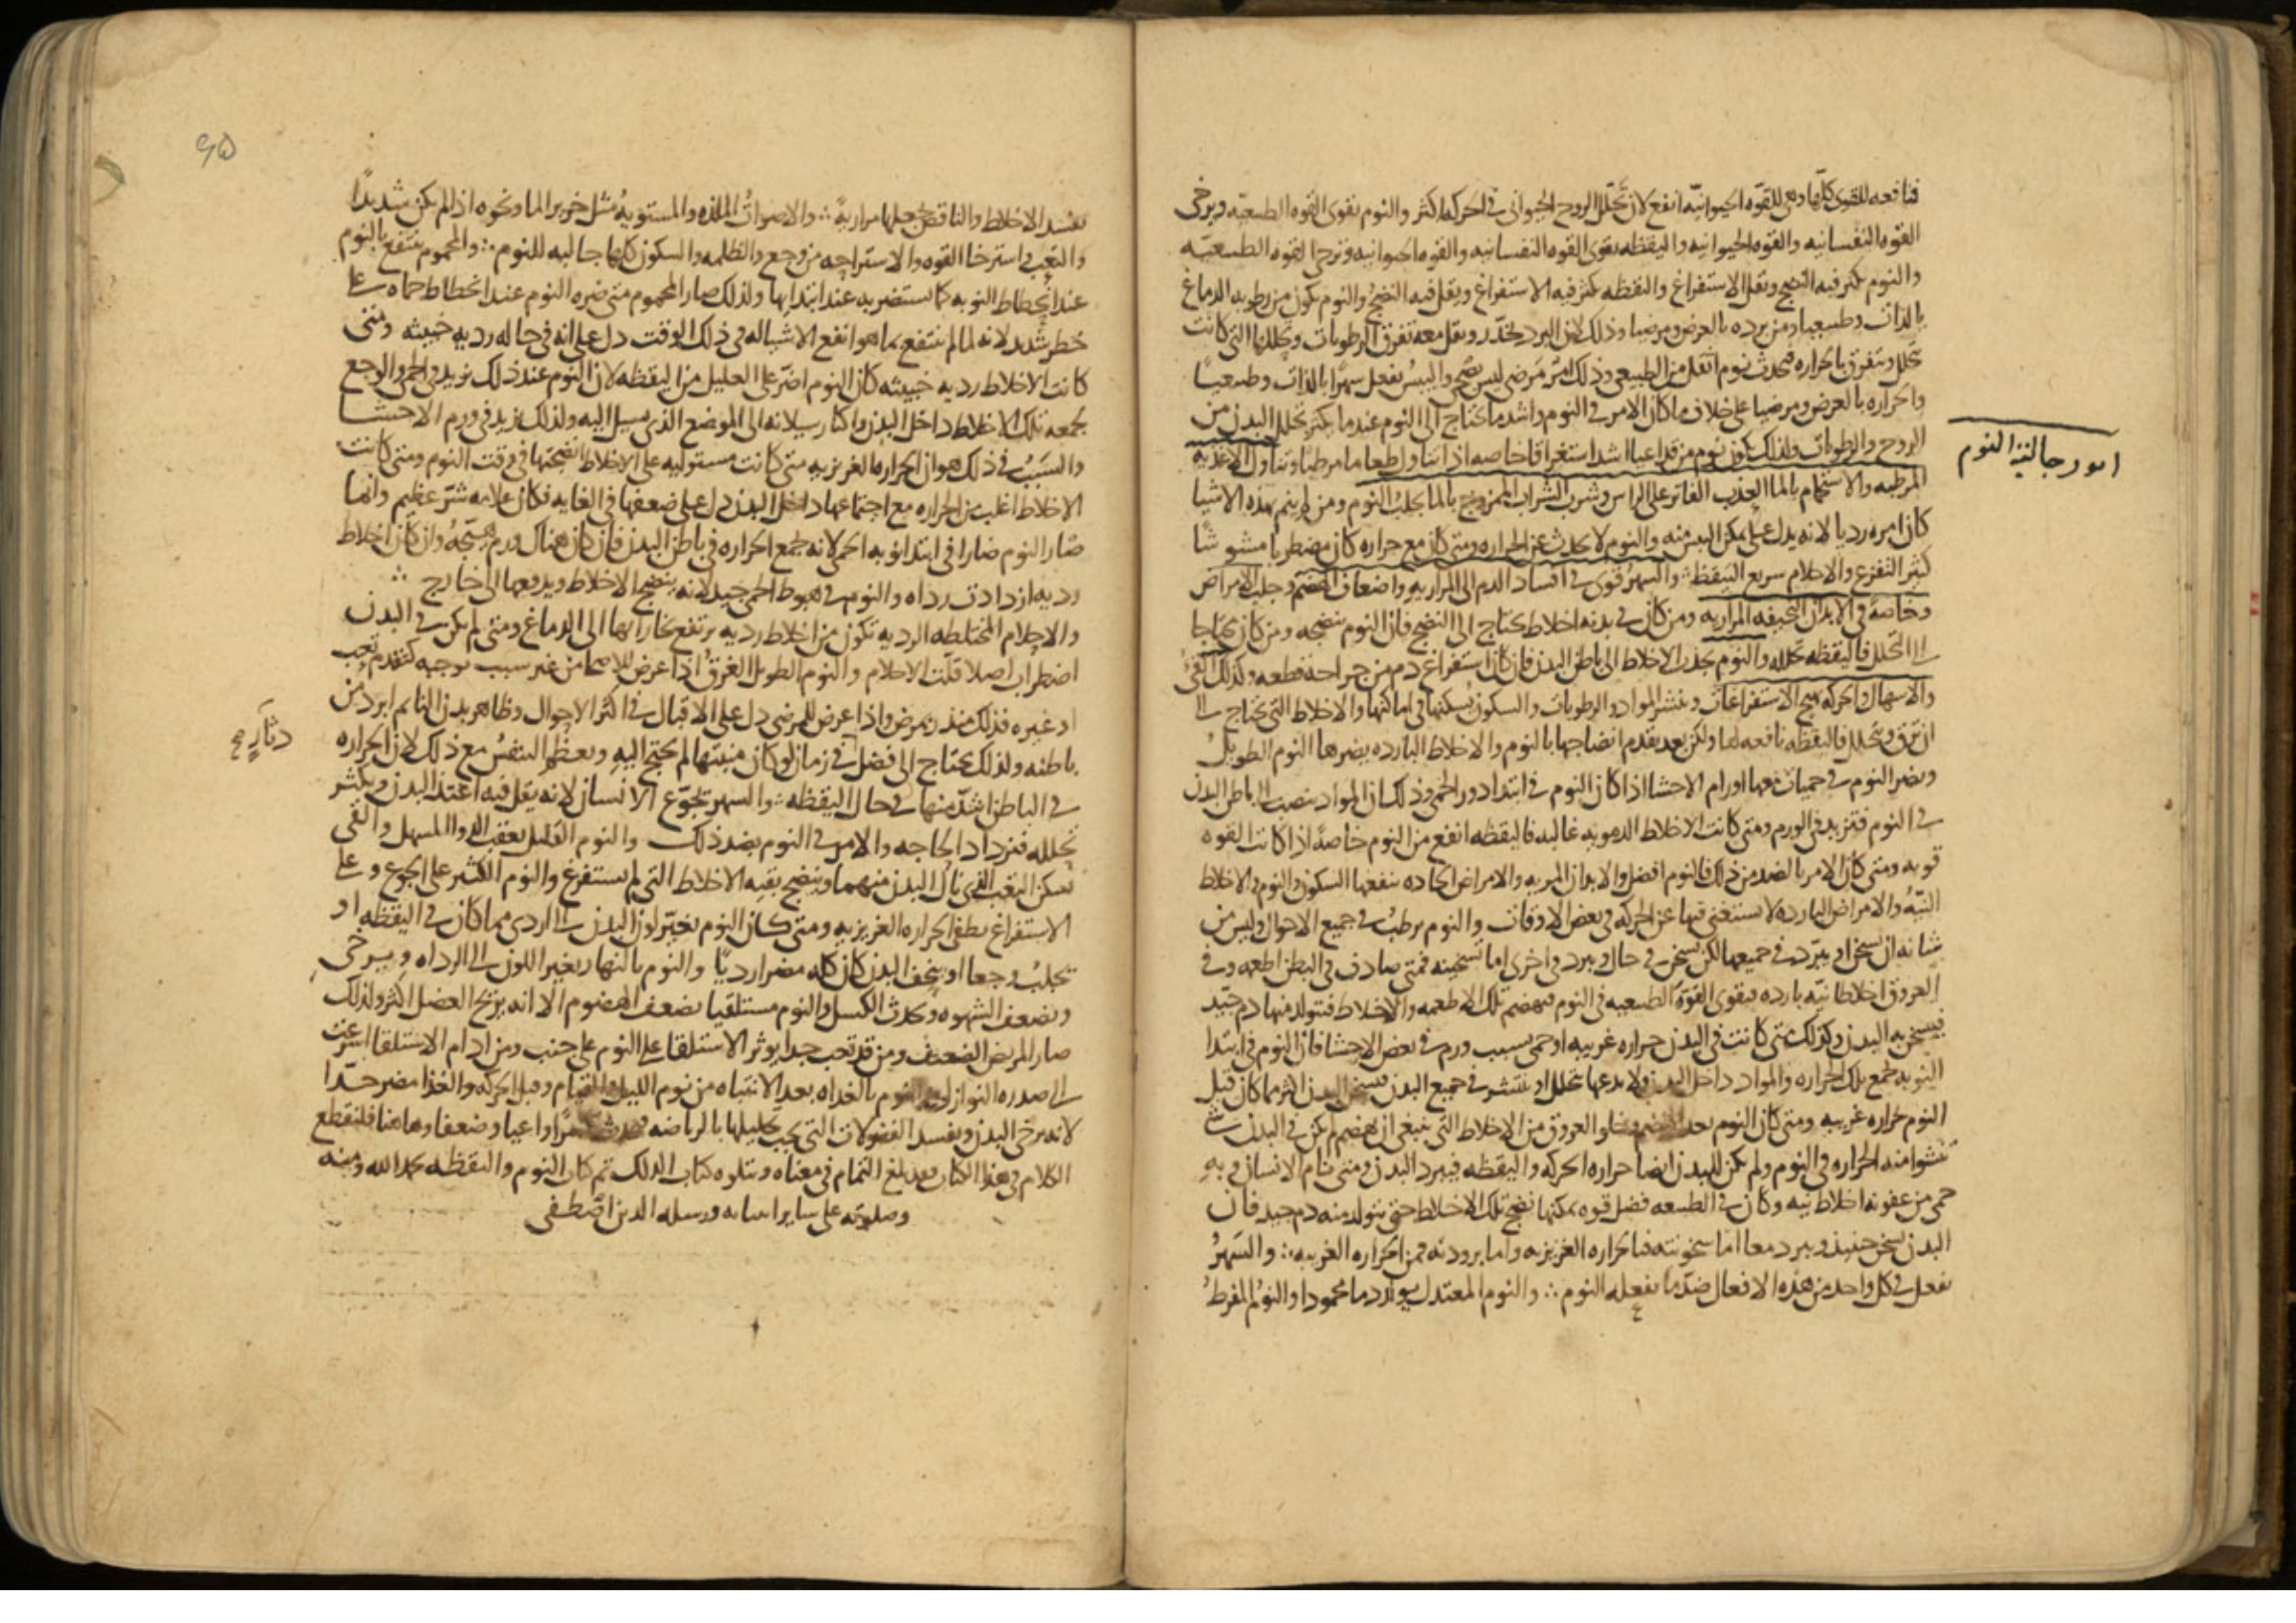 فنافعه للقوى كلها وهي للقوه الحيوانيّه انفع لان تحلل الروح الحيواني في الحركه اكثر والنوم يقوى القوه الطبيعيه ويرخى
القوه النفسانيه والقوه الحيوانيه واليقظه تقوى القوه النفسانيه والقوه الحيوانيه وترخى القوه الطبيعيّه
والنوم يكثر فيه النضج ويقل الاستفراغ واليقظه يكثر فيه الاستفراغ ويقل فيه النضج والنوم يكون من رطوبه الدماغ
بالذات وطبيعيا ومن برده بالعرض ومرضيا وذلك لان البرد يخدّر ويقل معه تفرق الرطوبات وتحللها التي كانت
تتحلل وتتفرق بالحراره فيحدث نوم اثقل من الطبيعي وذلك امر مَرَضي ليس بصحّي واليبسُ يفعل سهرًا بالذات وطبيعيًا
والحراره بالعرض ومرضيا على خلاف ما كان الامر في النوم واشد ما يحتاج الى النوم عندما يكثر تحلل البدن من
الروح والرطوبات ولذلك يكون نوم من قد اعيا اشد استغراقا خاصه اذا تناول طعاما مرطبا وتناول الاغذيه
المرطبه والاستحمام بالما العذب الفاتر على الراس وشرب الشراب الممزوج بالما يجلبُ النوم ومن لم ينم بهذه الاشيا
كان امره رديا لانه يدل على تمكن اليبس منه والنوم لا يحدث عن الحراره ومتى كان مع حراره كان مضطربا مشوشًا
كثير التفزع والاحلام سريع التيقظ والسهرُ قوى في افساد الدم الى المراريه واضعاف الهضم وجلب الامراض
وخاصةً في الابدان النحيفه المراريه ومن كان في بدنه اخلاط يحتاج الى النضج فان النوم ينضجه ومن كان يحتاجا
الى التحلل فاليقظه تحلله والنوم يجذب الاخلاط الى باطن البدن فان كان استفراغ دم من جراحه قطعه وكذلك القئ
والاسهال والحركه تهيج الاستفراغات وتنشر المواد والرطوبات والسكون يسكنها في اماكنها والاخلاط التي تحتاج الى
ان ترق وتتحلل فاليقظه نافعه لها ولكن بعد تقدم انضاجها بالنوم والاخلاط البارده يضرها النوم الطويلُ
ويضر النوم في حميات معها اورام الاحشا اذا كان النوم في ابتدا دور الحمى وذلك ان المواد تنصبّ الى باطن البدن
في النوم فتزيد في الورم ومتى كانت الاخلاط الدمويه غالبه فاليقظه انفع من النوم خاصةً اذا كانت القوه
قويه ومتى كان الامر بالضد من ذلك فالنوم افضل والابدان المريه والامراض الحاده ينفعها السكون والنوم والاخلاط
النيّه والامراض البارده لا يستغنى فيها عن الحركه في بعض الاوقات والنوم يرطبُ في جميع الاحوال وليس من
شانه ان يسخن او يبرّد في جميعها لكن يسخن في حال ويبرد في اخرى اما تسخينه فمتى صادف في البطن اطعمه وفي
العروق اخلاطا نيّه بارده فيقوى القوّهُ الطبيعيه في النوم فيهضم تلك الاطعمه والاخلاط فتتولد منها دم جيّد
فيسخن به البدن وكذلك متى كانت في البدن حراره غريبه او حمى بسبب ورم في بعض الاحشا فان النوم في ابتدا
النوبه يجمع تلك الحراره والمواد داخل البدن ولا يدعها تتحلل او تنتشر في جميع البدن فيسخن البدن اكثر مما كان قبل
النوم حراره غريبه ومتى كان النوم بعد الهضم وخلو العروق من الاخلاط التي ينبغي ان تهضم لم يكن في البدن شئ
تنشوا منه الحراره في النوم ولم يكن للبدن ايضا حراره الحركه واليقظه فيبرد البدن ومتى نام الانسان وبهِ
حمى من عفونه اخلاط نيه وكان في الطبيعه فضل قوه يمكنها نضج تلك الاخلاط حتى يتولد منه دم جيد فان
البدن يسخن حينيذ ويبرد معا اما سخونته فبالحراره الغريزيه واما برودته فمن الحراره الغريبه ∴ والسَهرُ
يفعل في كل واحد من هذه الافعال ضدّ ما يفعله النوم ∴ والنوم المعتدل يولد دما محمودا والنومُ المفرط
امور جالبة النوم
يفسد الاخلاط والناقص يجعلها مراريةً ∴ والاصواتُ الملذه والمستويهُ مثل خرير الما ونحوه اذا لم يكن شديدًا
والتعب واسترخا القوه والاستراحه من وجع والظلمه والسكون كلها جالبه للنوم ∴ والمحموم ينتفع بالنوم
عند انحطاط النوبه كما يستضر به عند ابتدايها ولذلك صار المحموم متى ضره النوم عند انحطاط حماه على
خطر شديد لانه لما لم ينتفع بما هو انفع الاشيا له في ذلك الوقت دل على انه في حاله رديه خبيثه ومتى
كانت الاخلاط رديه خبيثه كان النوم اضرّ على العليل من اليقظه لان النوم عند ذلك يزيد في الحمى والوجع
بجمعه تلك الاخلاط داخل البدن واكثار سيلانه الى الموضع الذي يسيل اليه ولذلك يزيد في ورم الاحشا
والسَببُ في ذلك هو ان الحراره الغريزيه متى كانت مستوليه على الاخلاط انضجتها في وقت النوم ومتى كانت
الاخلاط اغلب من الحراره مع اجتماعها داخل البدن دل على ضعفها في الغايه فكان علامه شرّ عظيم وانما
صار النوم ضارا في ابتدا نوبه الحمى لانه يجمع الحراره في باطن البدن فان كان هناك ورم هيّجهُ وان كان اخلاط
رديه ازدادت رداه والنوم في هبوط الحمى جيد لانه ينضج الاخلاط ويدفعها الى خارج ∴
والاحلام المختلطه الرديه تكون من اخلاط رديه يرتفع بخاراتها الى الدماغ ومتى لم يكن في البدن
اضطراب اصلا قلّت الاحلام والنوم الطويل الغرقُ اذا عرض للاصحا من غير سبب يوجبه كتقدم تعب
او غيره فذلك منذر بمرض واذا عرض للمرضى دل على الاقبال في اكثر الاحوال وظاهر بدن النايم ابرد من
باطنه ولذلك يحتاج الى فضل في زمان لو كان منتبها لم يحتج اليهِ ويعظم التنفسُ مع ذلك لان الحراره
دثارٍ صح
في الباطن اشدّ منها في حال اليقظه ∴ والسهر يجوّع الانسان لانه يقل فيه اغتذا البدن ويكثر
تحلله فتزداد الحاجه والامر في النوم بضد ذلك والنوم القليل يعقب الدوا المسهل والقي
يسكن التعب الذي نال البدن منهما وينضج بقيه الاخلاط التي لم تستفرغ والنوم الكثير على الجوع وعلى
الاستفراغ يطفى الحراره الغريزيه ومتى كان النوم يغيّر لون البدن الى اردى مما كان في اليقظه او
يجلبُ وجعا او ينحف البدن كان كله مضرا رديًا والنوم بالنهار يغير اللون الى الرداه ويرخى
ويضعف الشهوه ويحدث الكسل والنوم مستلقيا يضعف الهضوم الا انه يريح العضل اكثر ولذلك
صار المريض الضعيف ومن قد تعب جدا يوثر الاستلقا على النوم على جنب ومن ادام الاستلقا اسرعت
الى صدره النوازل والنوم بالغداه بعد الانتباه من نوم الليل والقيام وقبل الحركه والغذا مضر جدًّا
لانه يرخى البدن ويفسد الفضولات التي يجب تحليلها بالرياضه فيحدث واعيا وضعفا وهاهنا فلنقطع
الكلام في هذا الكتاب فقد بلغ التمام في معناه ويتلوه كتاب الدلك تم كتاب النوم واليقظه بحمد الله ومنه
وصلوته على ساير انبيايه ورسله الذين اصطفى
٩٥